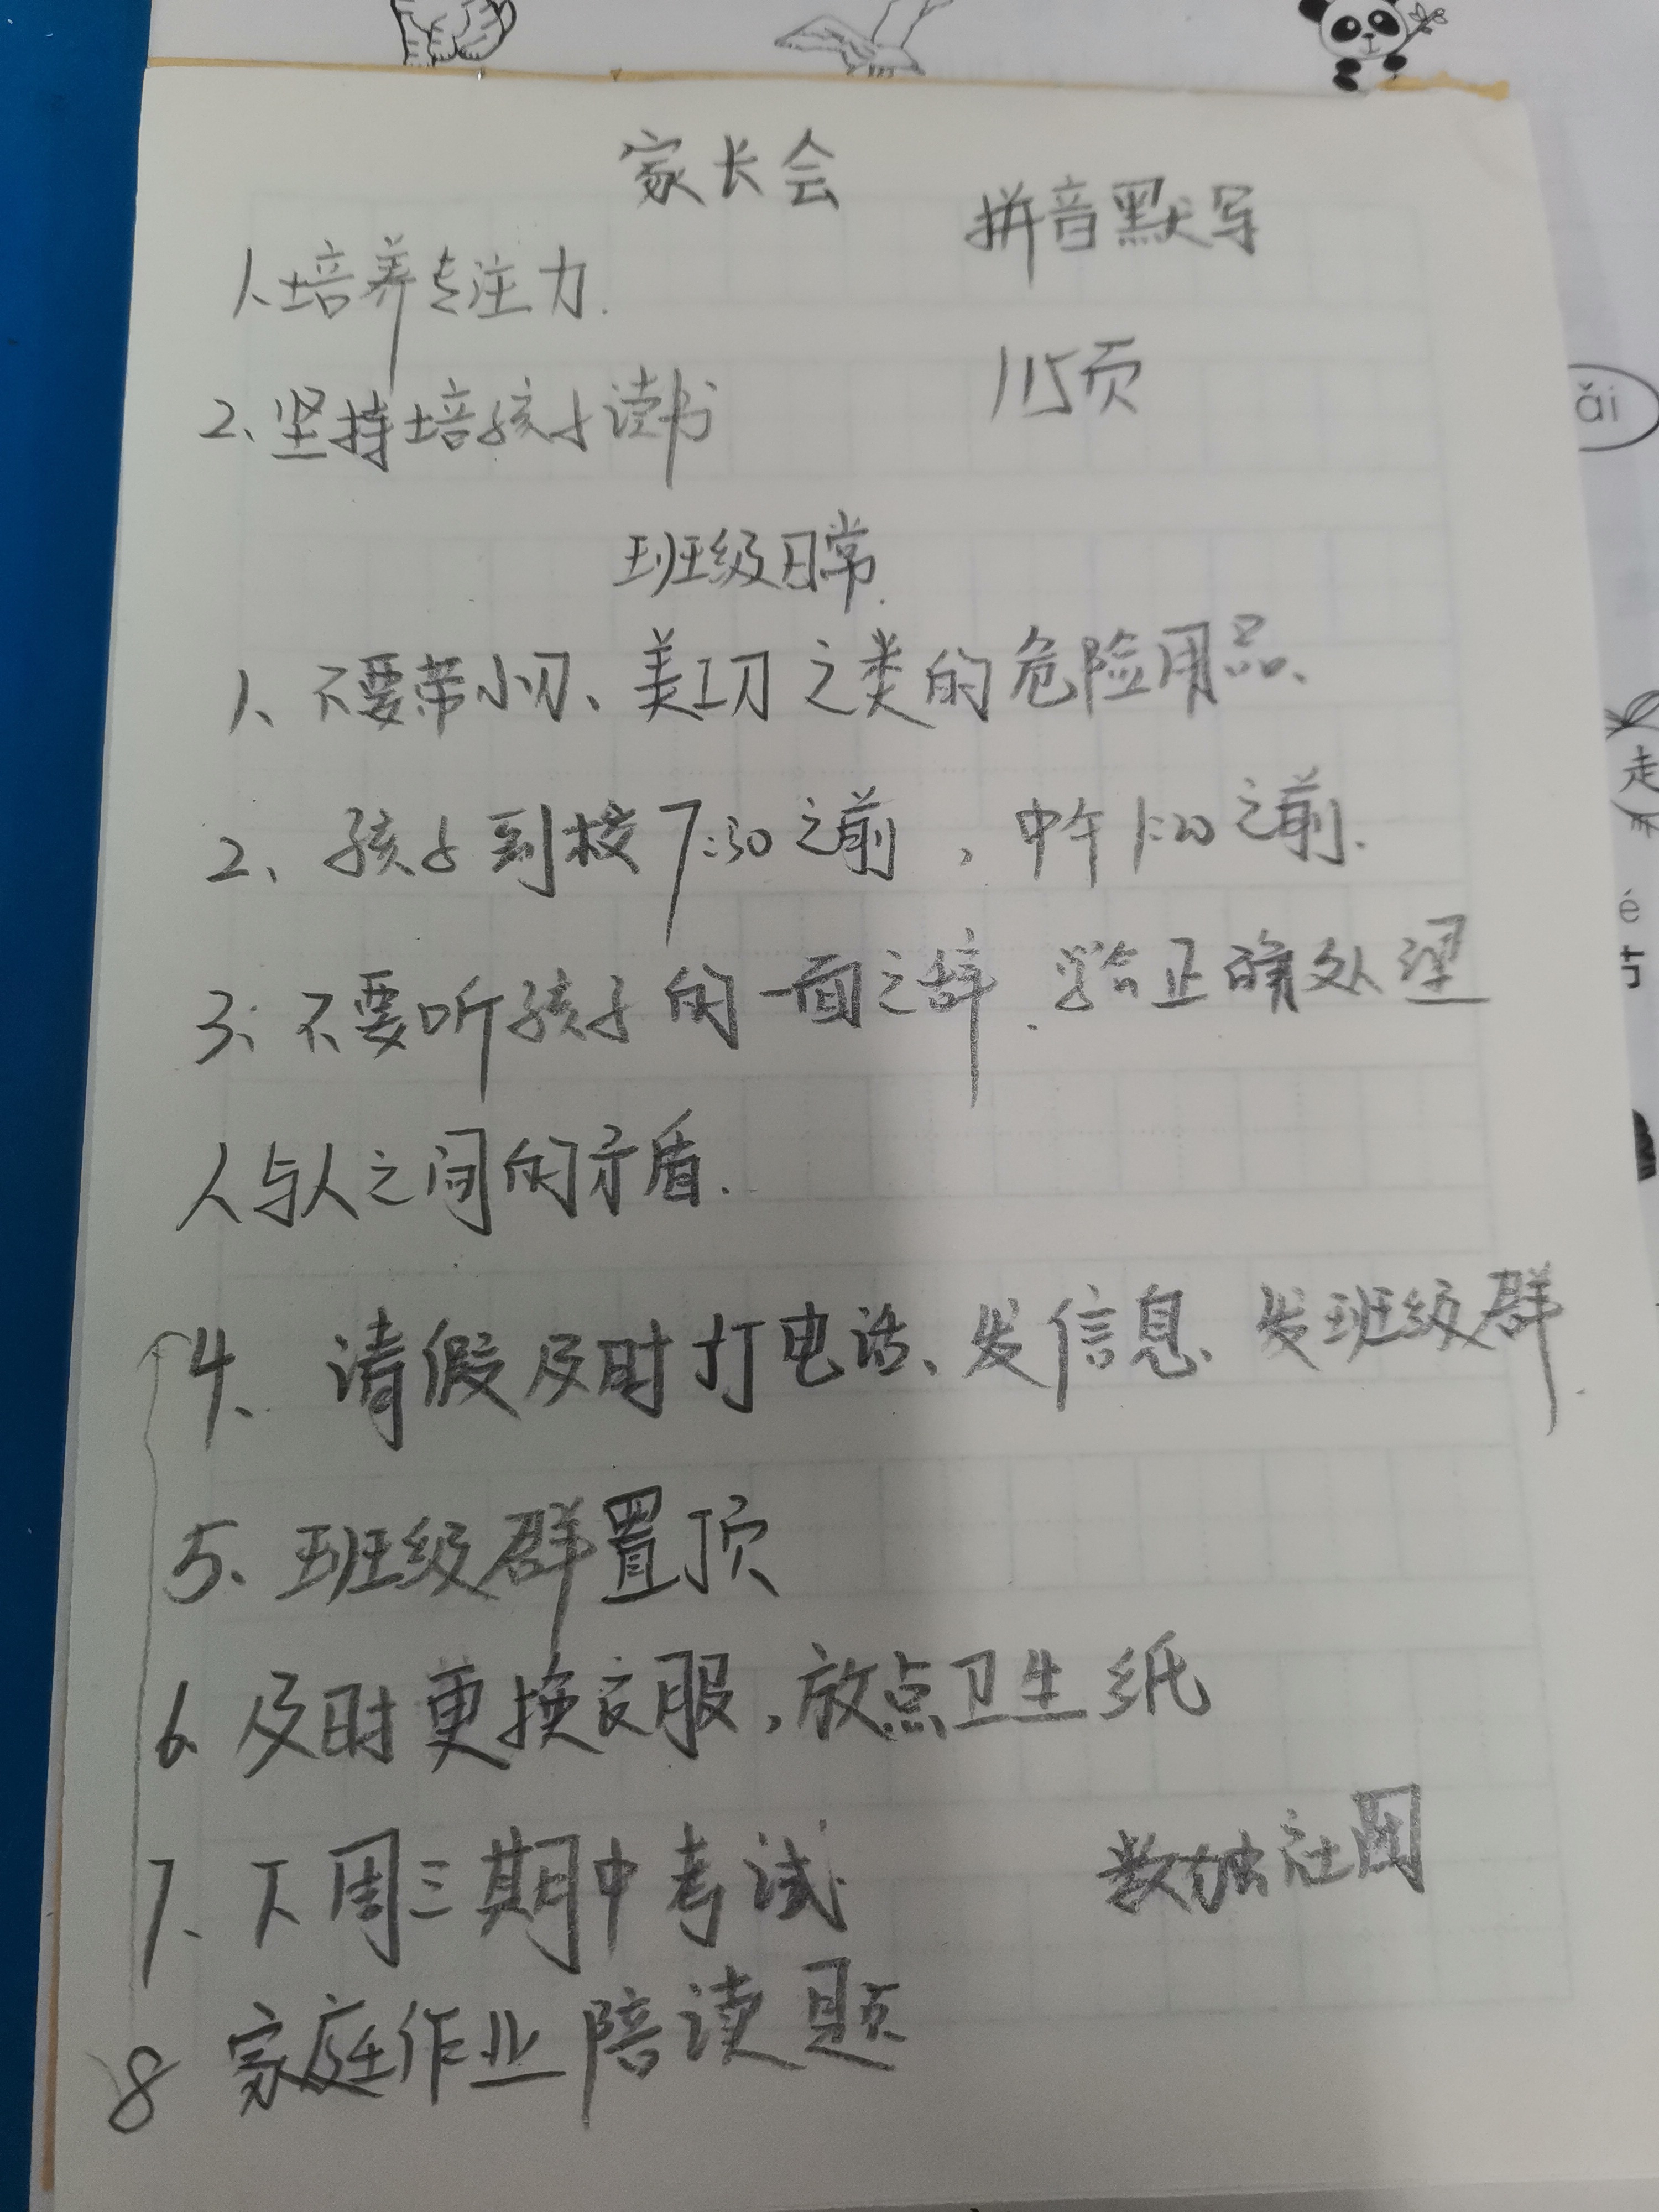 家长会
拼音默写
1、培养专注力.
115页
2、坚持培孩子读书
班级日常.
1、不要带小刀、美工刀之类的危险用品、
2、孩子到校7:30之前，中午1:20之前.
3、不要听孩子的一面之辞.学会正确处理
人与人之间的矛盾.
4、请假及时打电话、发信息、发班级群.
5、班级群置顶
6、及时更换衣服，放点卫生纸
7、下周三期中考试
数独社团
8 家庭作业陪读题
ǎi
走
é